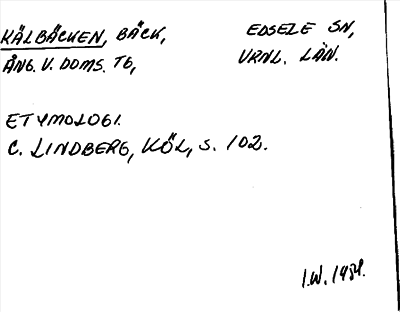 KÄLBÄCKEN, BÄCK, EDSELE SN,
ÅNG. V. DOMS. TG, VRNL. LÄN.
ETYMOLOGI.
C. LINDBERG, KÖL, S. 102.
I.W. 1984.